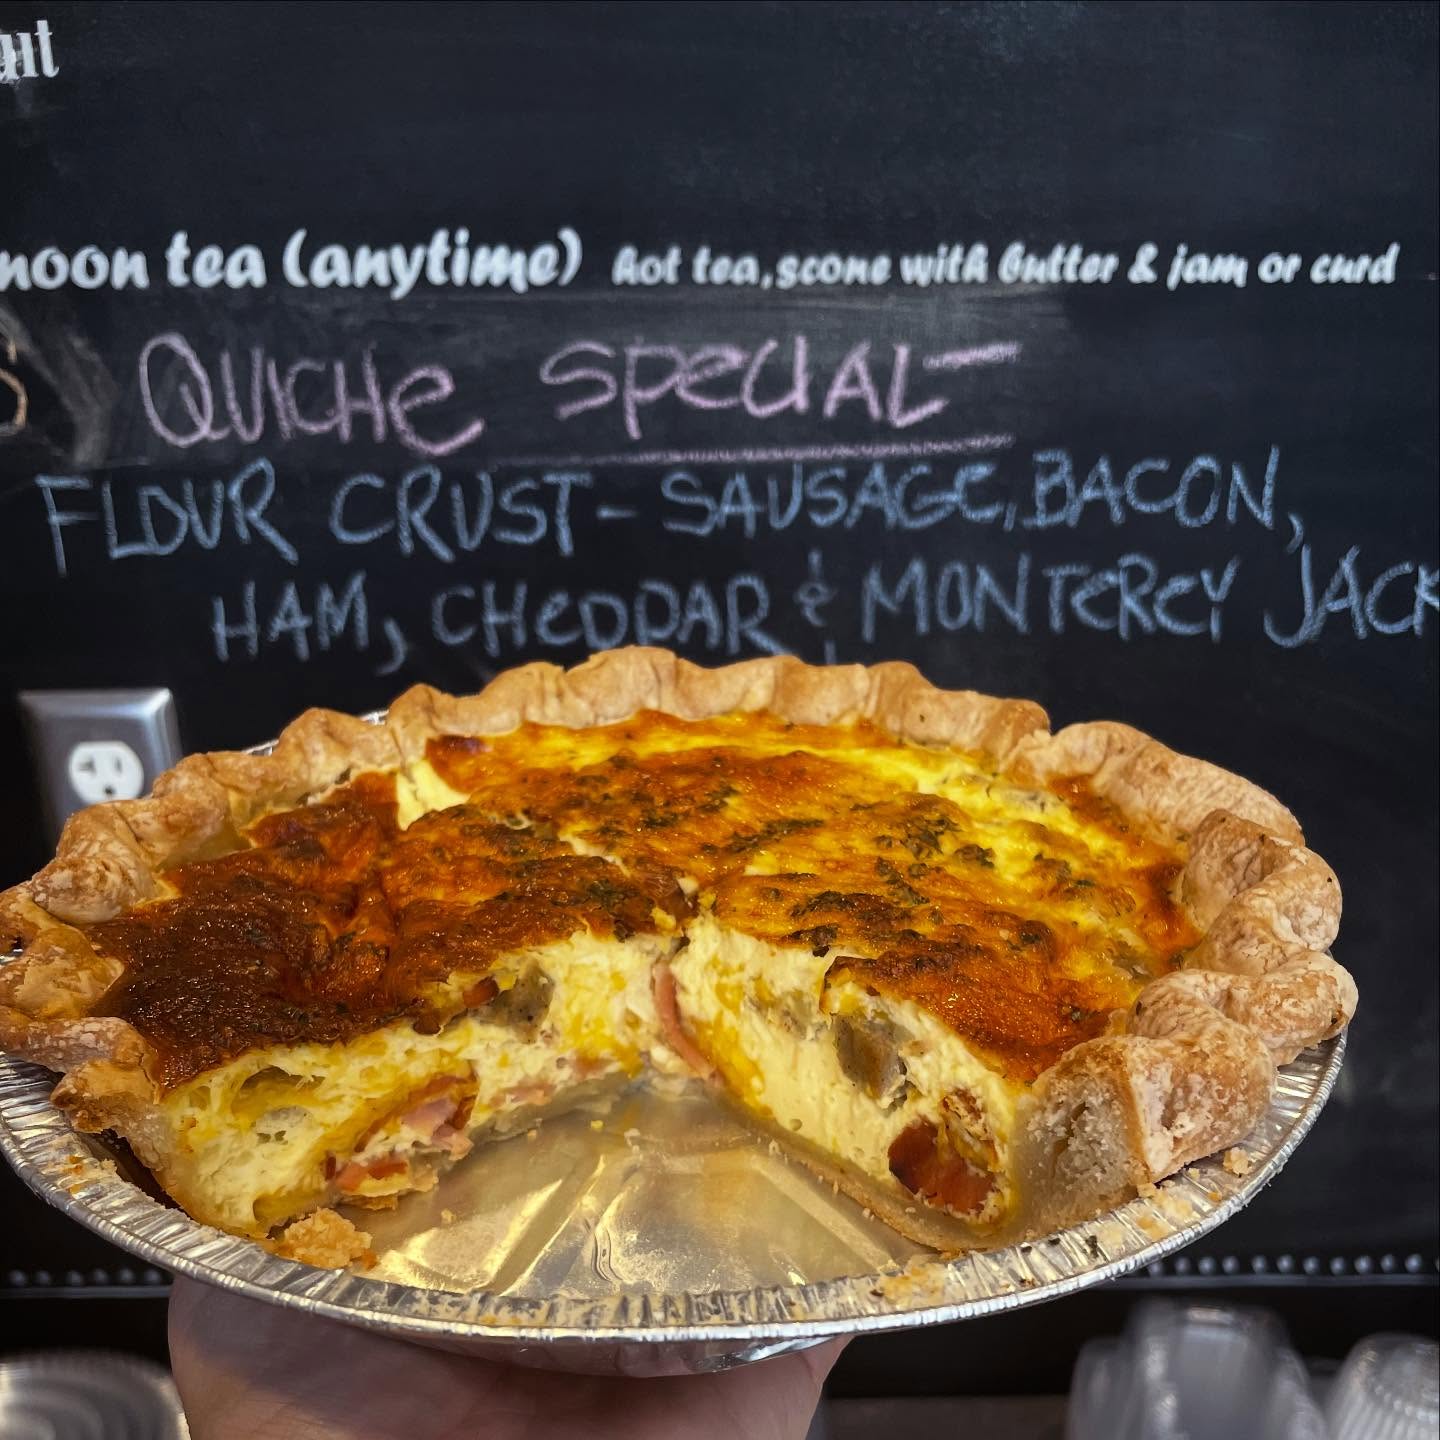 noon tea (anytime) hot tea, scone with butter & jam or curd
QUICHe SPeCIAL
FLOUR CRUST - SAUSAGe, BACON,
HAM, CHeDDAR & MONTeReY JACK